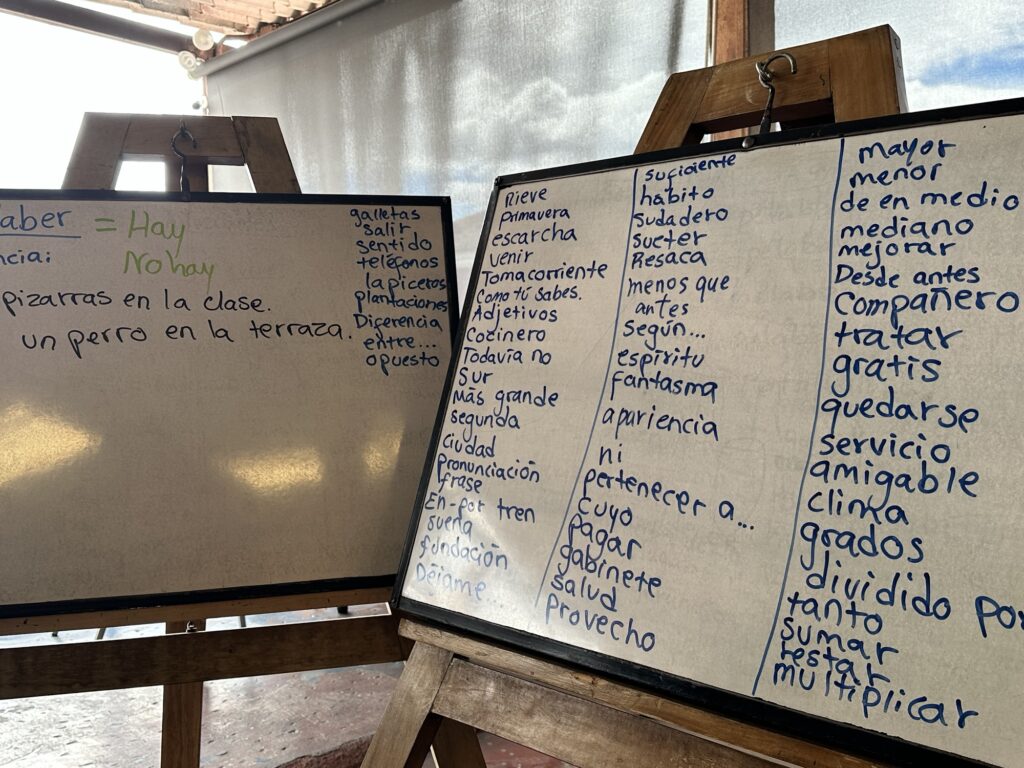 aber = Hay
No hay
ncia:
pizarras en la clase.
un perro en la terraza.
galletas
salir
sentido
teléfonos
lapiceros
plantaciones
Diferencia
entre...
opuesto
Nieve
Primavera
escarcha
venir
Tomacorriente
Como tú sabes.
Adjetivos
Cocinero
Todavía no
Sur
Más grande
segunda
ciudad
pronunciación
frase
En-por tren
suena
fundación
Déjame...
suficiente
hábito
Sudadero
sueter
Resaca
menos que
antes
según...
espíritu
fantasma
apariencia
ni
pertenecer a...
Cuyo
Pagar
gabinete
salud
provecho
mayor
menor
de en medio
mediano
mejorar
Desde antes
compañero
tratar
gratis
quedarse
servicio
amigable
clima
grados
dividido por
tanto
sumar
restar
multiplicar